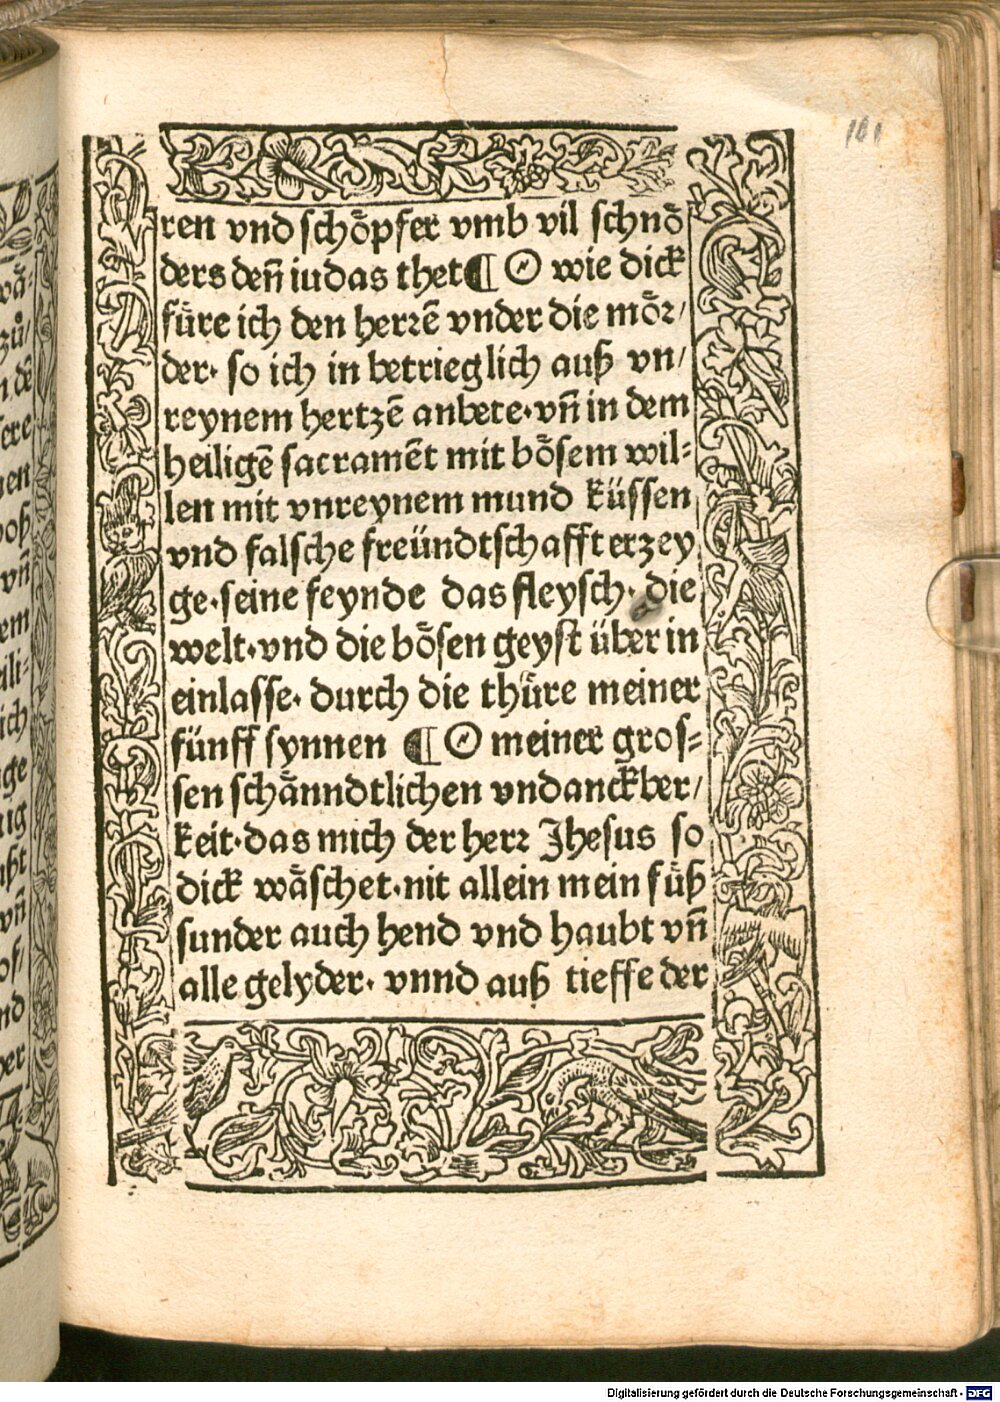 161
ren vnd schoͤpfer vmb vil schnoͤ
ders deñ iudas thet¶ O wie dick
fuͤre ich den herꝛē vnder die moͤꝛ/
der· so ich in betrieglich auß vn/
reynem hertzē anbete·vñ in dem
heiligē sacramēt mit boͤsem wil⸗
len mit vnreynem mund küssen
vnd falsche freündtschafft erzey
ge·seine feynde das fleysch· die
welt·vnd die boͤsen geyst über in
einlasse· durch die thuͤre meiner
fünff synnen ¶ O meiner gros⸗
sen schaͤnndtlichen vndanckber/
keit·das mich der herꝛ Jhesus so
dick waͤschet·nit allein mein fuͤß
sunder auch hend vnd haubt vñ
alle gelyder· vnnd auß tieffe der
Digitalisierung gefördert durch die Deutsche Forschungsgemeinschaft - DFG